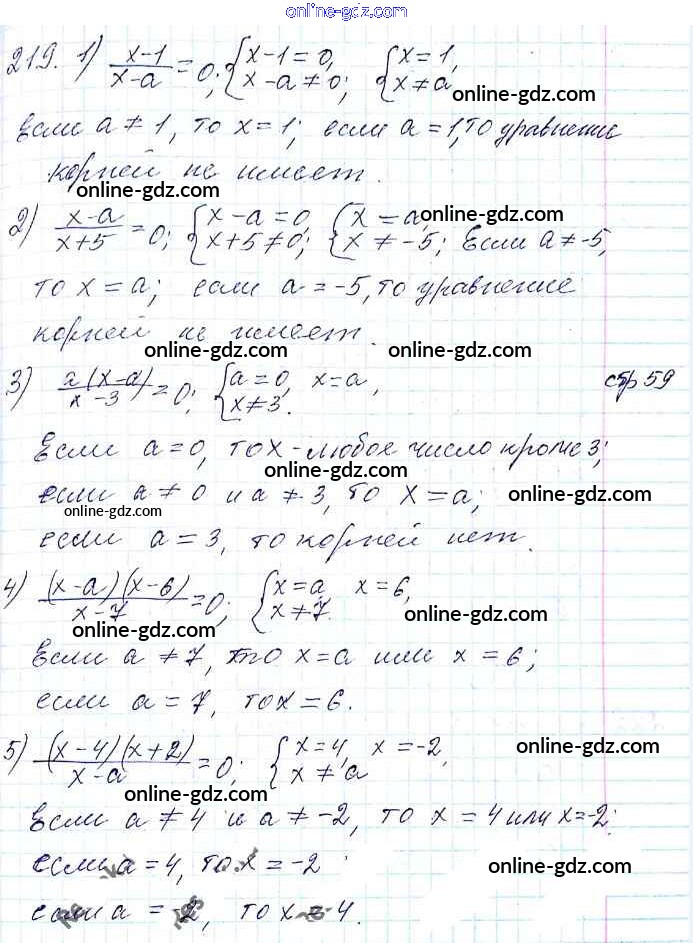 online-gdz.com
219. 1) (x-1)/(x-a) = 0; { x-1=0, x-a≠0; { x=1, x≠a
online-gdz.com
Если a≠1, то x=1; если a=1, то уравнение
корней не имеет.
online-gdz.com
2) (x-a)/(x+5) = 0; { x-a=0, x+5≠0; { x=a, x≠-5; Если a≠-5,
online-gdz.com
то x=a; если a=-5, то уравнение
корней не имеет.
online-gdz.com online-gdz.com
3) a(x-a)/(x-3) = 0; { a=0, x=a, x≠3. стр 59
Если a=0, то x-любое число кроме 3;
online-gdz.com
если a≠0 и a≠3, то x=a;
online-gdz.com online-gdz.com
если a=3, то корней нет.
4) (x-a)(x-6)/(x-7) = 0; { x=a, x=6, x≠7.
online-gdz.com online-gdz.com
Если a≠7, то x=a или x=6;
online-gdz.com
если a=7, то x=6.
5) (x-4)(x+2)/(x-a) = 0; { x=4, x=-2, x≠a
online-gdz.com
online-gdz.com
Если a≠4 и a≠-2, то x=4 или x=-2;
если a=4, то x=-2
если a=-2, то x=4.